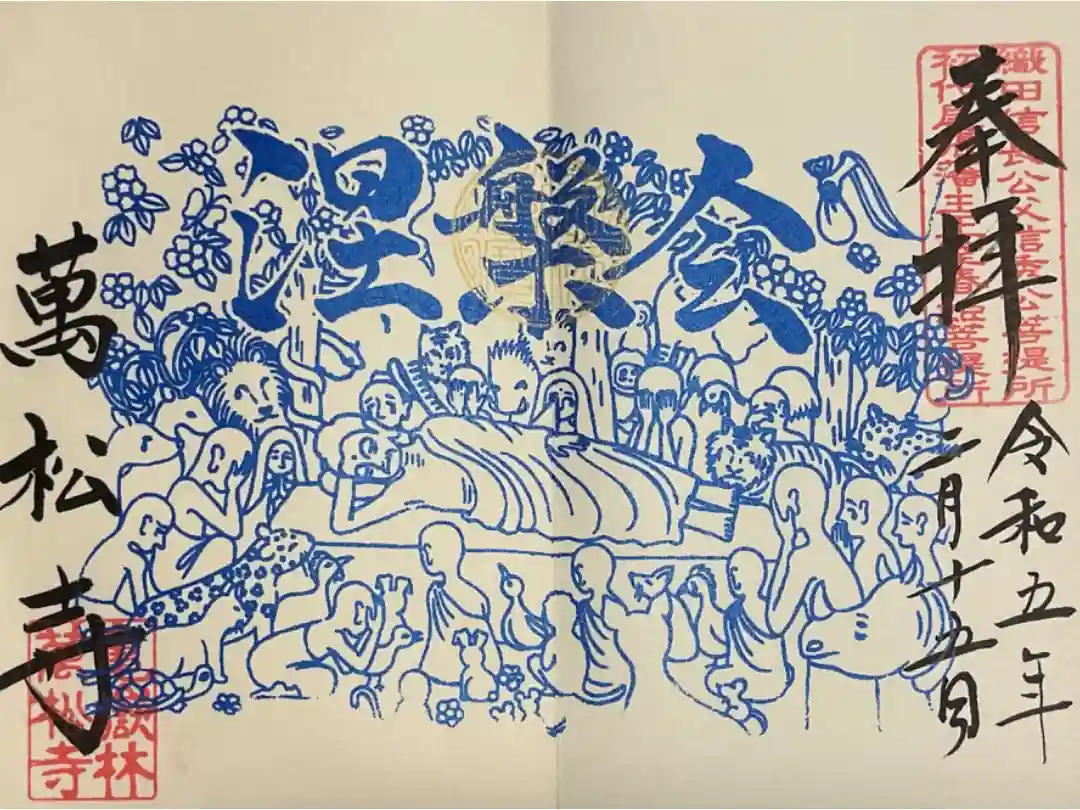 織田信長公父信秀公菩提所
初代尾張藩主正室春姫菩提所
奉拝
令和五年
二月十五日
涅槃会
萬松寺
亀嶽林
萬松寺